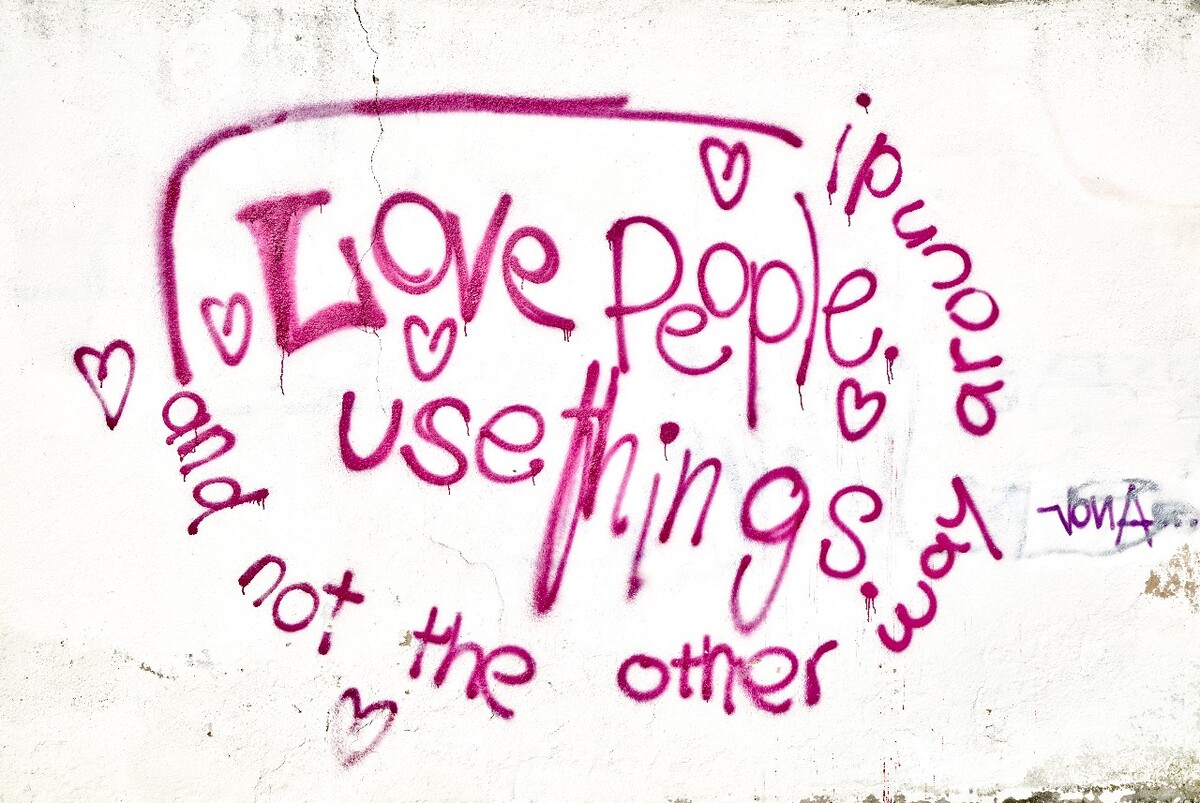 Love People.
use things.
and not the other way around!